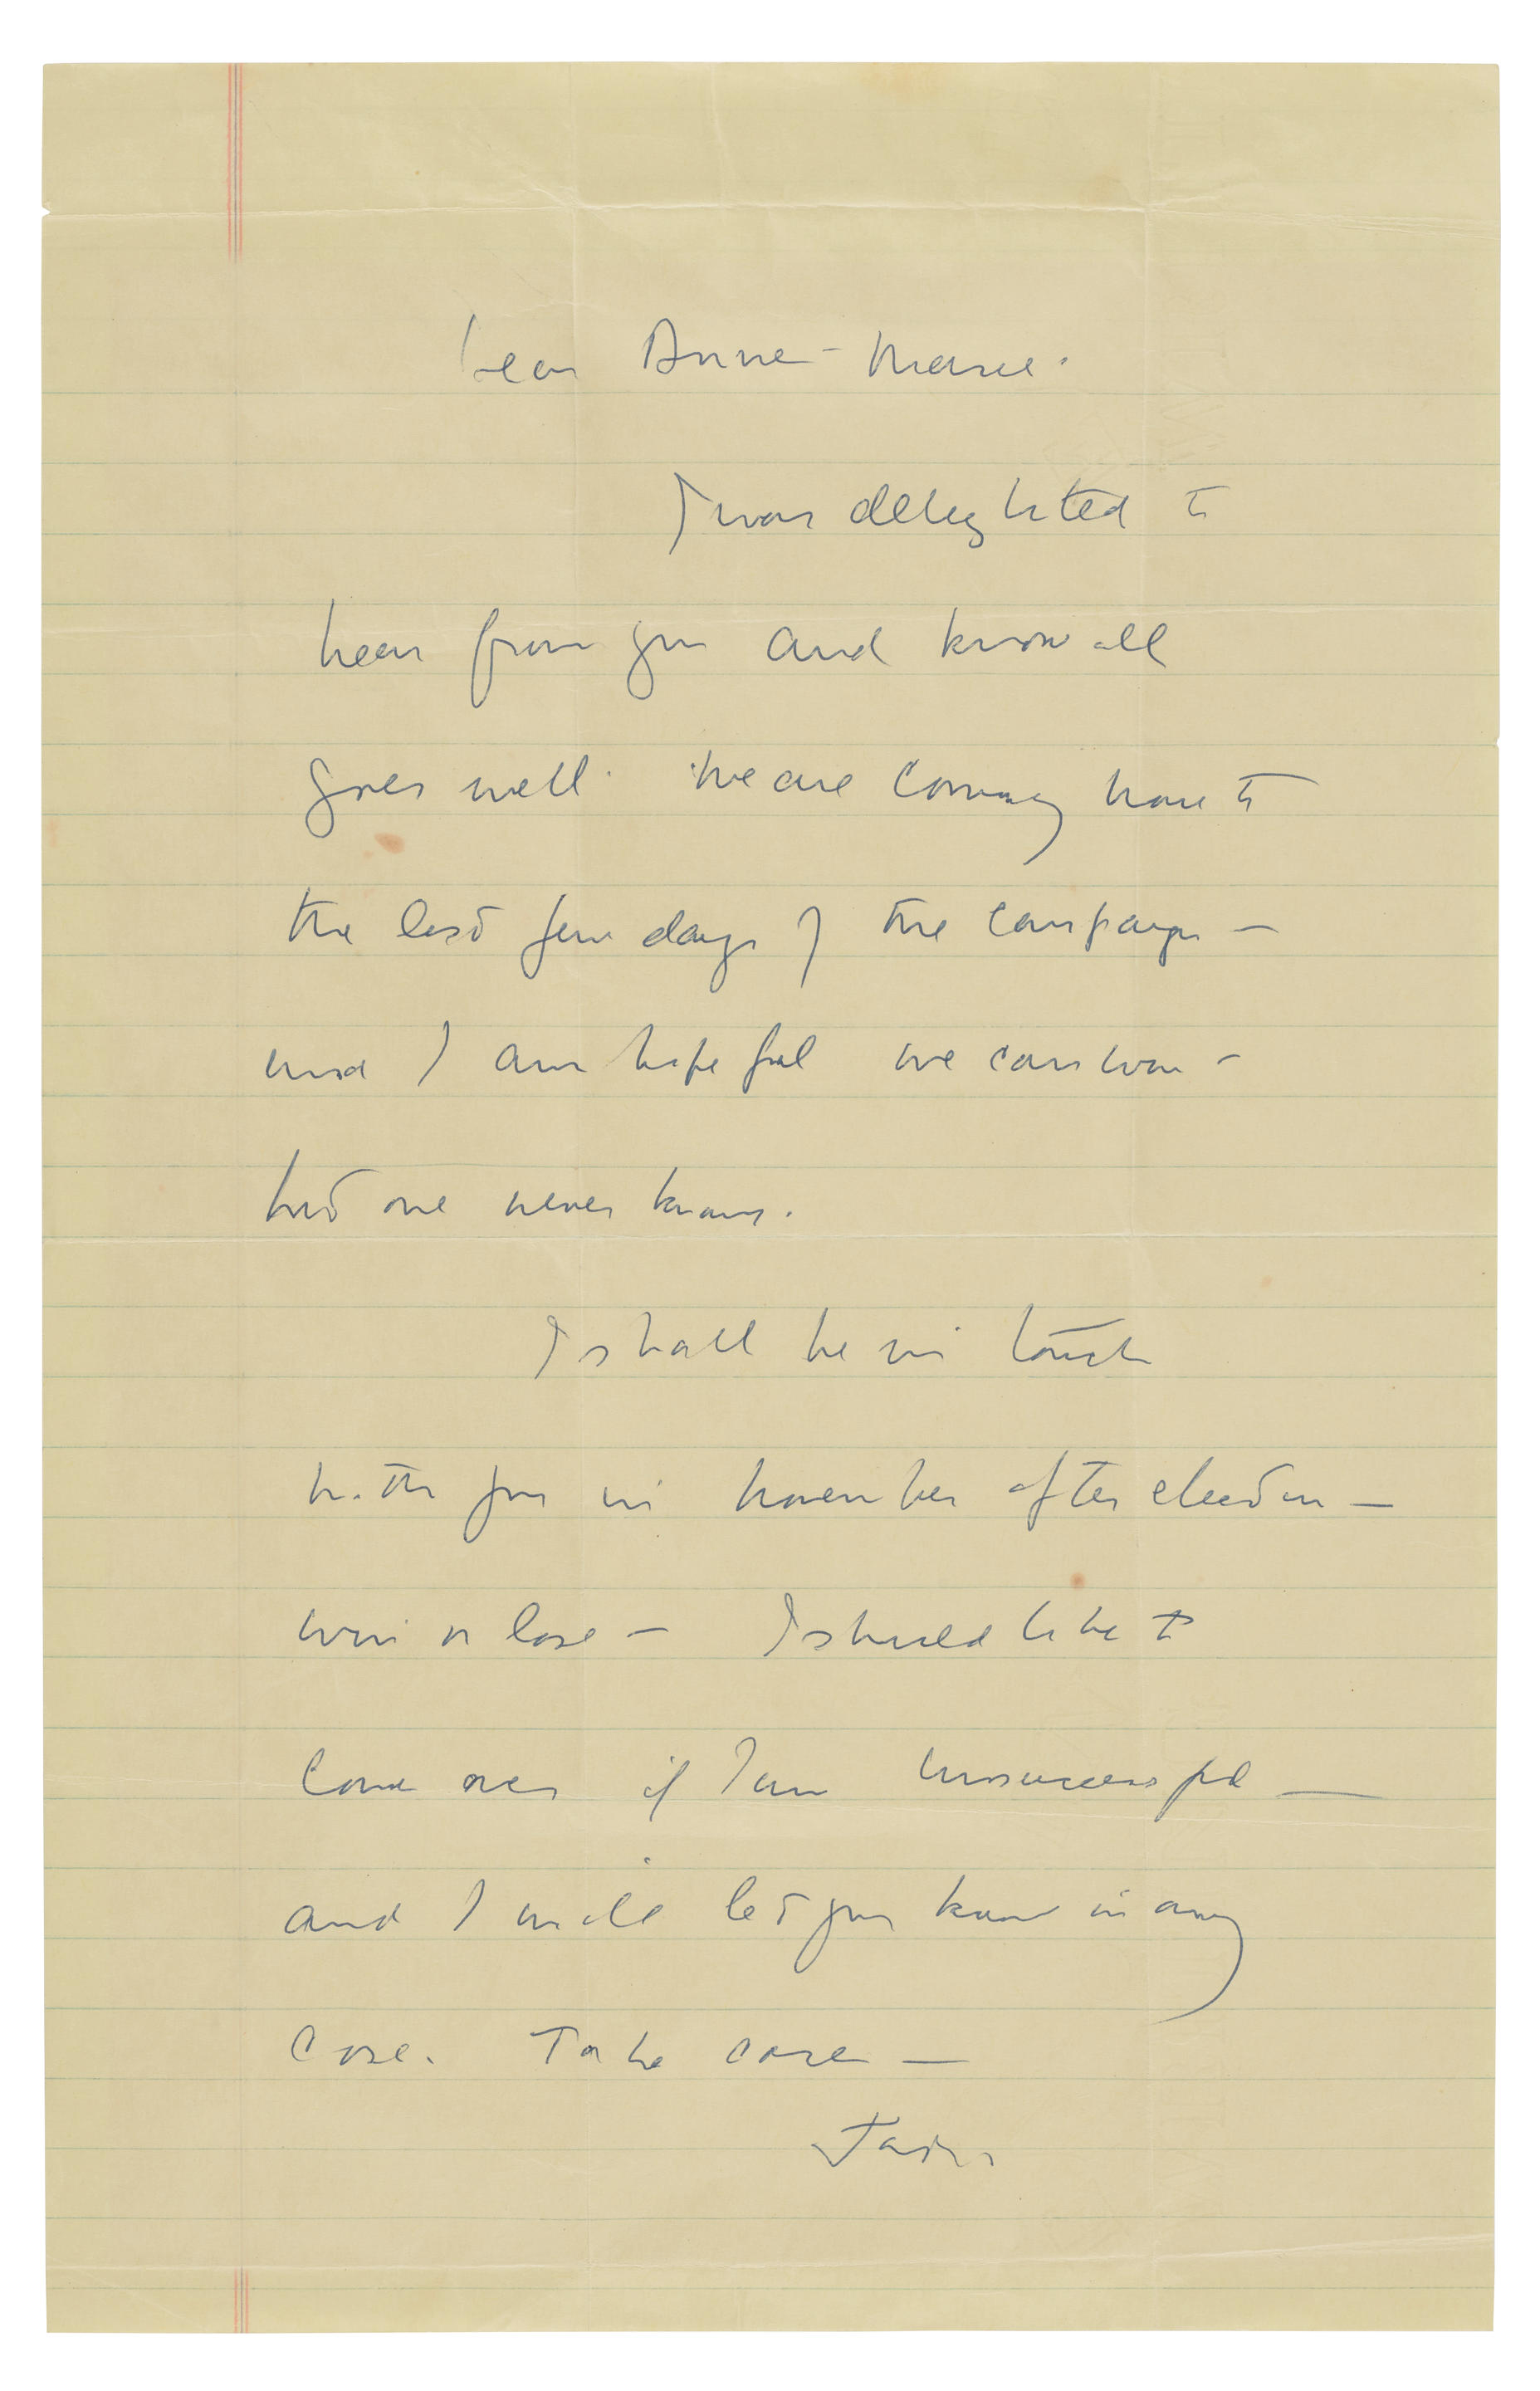 Dear Anne-Marie.
I was delighted to
hear from you and know all
goes well. We are coming now to
the last few days of the campaign —
and I am hopeful we can win —
but one never knows.
I shall be in touch
with you in November after election —
win or lose — I should like to
come over if I am unsuccessful —
and I will let you know in any
case. Take care —
Jack